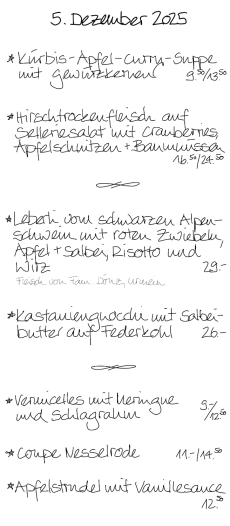 5. Dezember 2025
* Kürbis-Apfel-Curry-Suppe
mit gewürzkernen 9.50/13.50
* Hirschtrockenfleisch auf
Selleriesalat mit Cranberries,
Apfelschnitzen + Baumnüssen
16.50/24.50
* Leberli vom schwarzen Alpen-
schwein mit roten Zwiebeln,
Apfel + Salbei, Risotto und
Wirz 29.-
Fleisch von Fam. Dönz, Urmein
* Kastaniengnocchi mit Salbei-
butter auf Federkohl 26.-
* Vermicelles mit Meringue
und Schlagrahm 9.-/12.50
* Coupe Nesselrode 11.-/14.50
* Apfelstrudel mit Vanillesauce
12.50